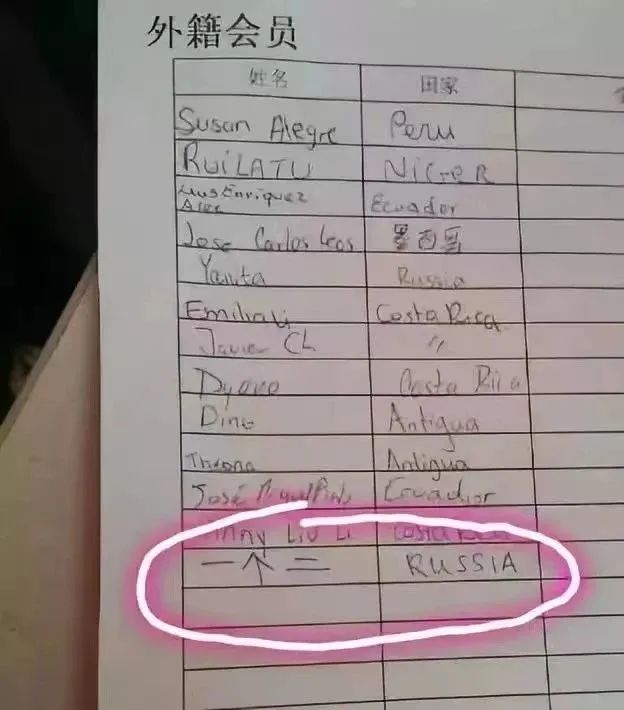 外籍会员
姓名 国家
Susan Alegre Peru
RUiLATU NiGeR
Enriquez
Alec Ecuador
Jose Carlos Leos 墨西哥
Yanita Russia
Emiliali Costa Rica
Javier CL 〃
Costa Rica
Dino Antigua
Antigua
José Ecuador
Liu Li Costa Rica
一个二 RUSSIA